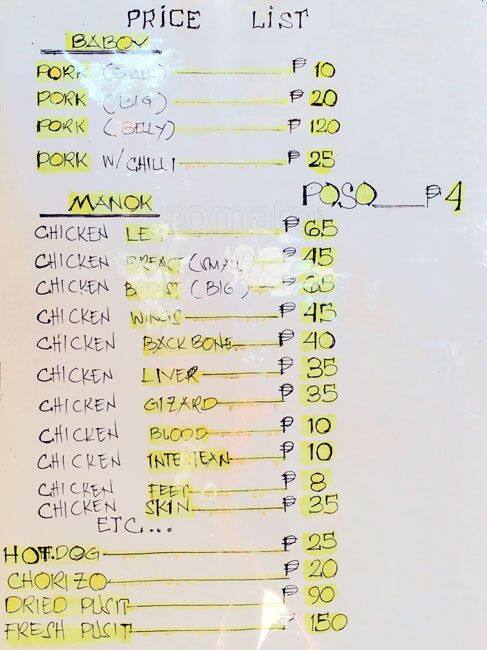 PRICE LIST
BABOY
PORK (SMALL) ₱ 10
PORK (BIG) ₱ 20
PORK (BELLY) ₱ 120
PORK W/CHILLI ₱ 25
POSO ₱ 4
MANOK
CHICKEN LEG ₱ 65
CHICKEN BREAST (SMALL) ₱ 45
CHICKEN BREAST (BIG) ₱ 65
CHICKEN WINGS ₱ 45
CHICKEN BACKBONE ₱ 40
CHICKEN LIVER ₱ 35
CHICKEN GIZARD ₱ 35
CHICKEN BLOOD ₱ 10
CHICKEN INTESTEAN ₱ 10
CHICKEN FEET ₱ 8
CHICKEN SKIN ₱ 35
ETC...
HOTDOG ₱ 25
CHORIZO ₱ 20
DRIED PUSIT ₱ 90
FRESH PUSIT ₱ 150
zomato